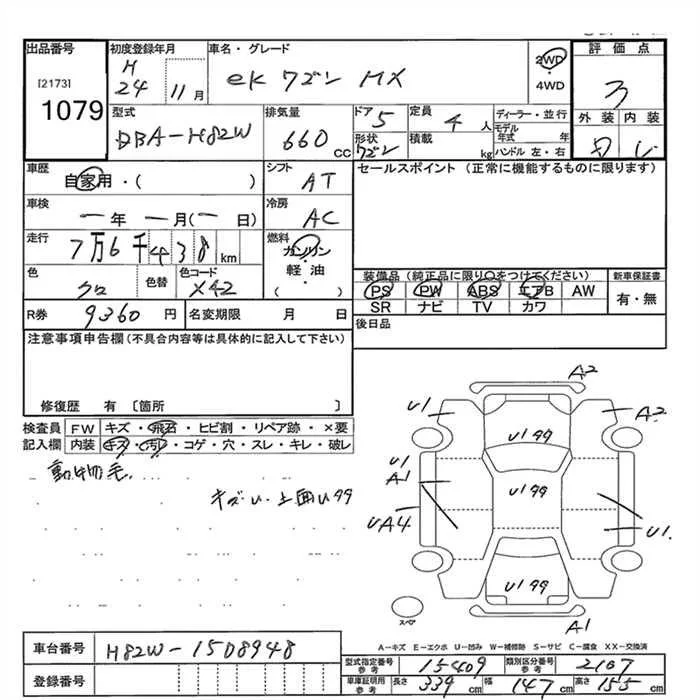 出品番号
[2173]
1079
初度登録年月
H
24 11月
車名・グレード
eK ワゴン MX
2WD
・
4WD
評価点
3
外装 内装
型式
DBA-H82W
排気量
660 cc
ドア 5
形状 ワゴン
定員 4 人
積載 kg
ディーラー・並行
モデル年式 年
ハンドル 左・右
車歴
自家用・( )
シフト
AT
セールスポイント (正常に機能するものに限ります)
車検
ー年 ー月(ー日)
冷房
AC
走行
7万6千438 km
燃料
ガソリン
軽油
( )
色
クロ
色替
色コード
X42
装備品(純正品に限り○をつけてください)
PS PW ABS エアB AW
SR ナビ TV カワ
新車保証書
有・無
R券 9360 円 名変期限 月 日
後日品
注意事項申告欄(不具合内容等は具体的に記入して下さい)
修復歴 有〔箇所 〕
検査員 FW キズ・飛石・ヒビ割・リペア跡・×要
記入欄 内装 キズ・汚れ・コゲ・穴・スレ・キレ・破レ
動物毛.
キズU・上面U99
A2
U1
A2
U199
U1
A1
U199
UA4
U1.
U199
A1
スペア
A-キズ E-エクボ U-凹み W-補修跡 S-サビ C-腐食 XX-交換済
車台番号 H82W-1508948
登録番号
型式指定番号 参考 15409 類別区分番号 参考 2107
車庫証明用 参考 長さ 339 cm 幅 147 cm 高さ 155 cm